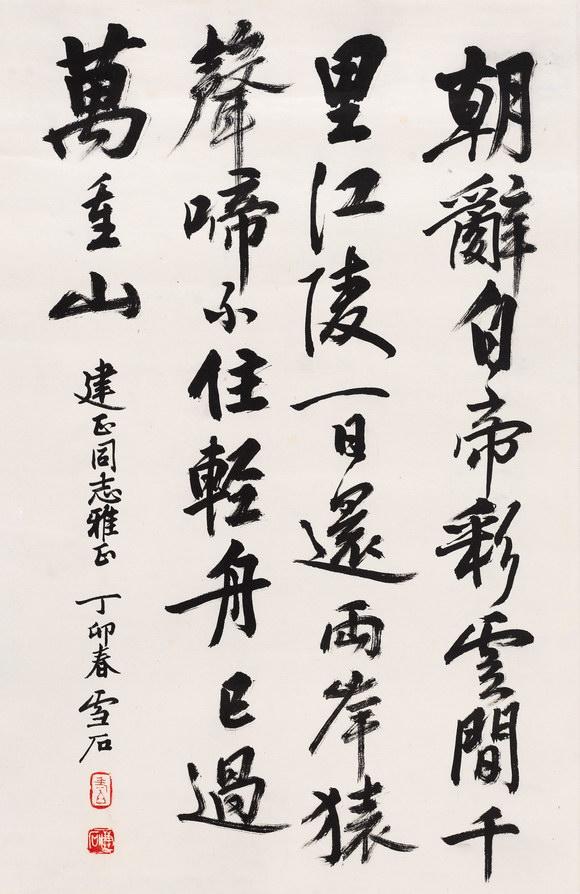 朝辭白帝彩雲間千
里江陵一日還兩岸猿
聲啼不住輕舟已過
萬重山
建正同志雅正
丁卯春雪石